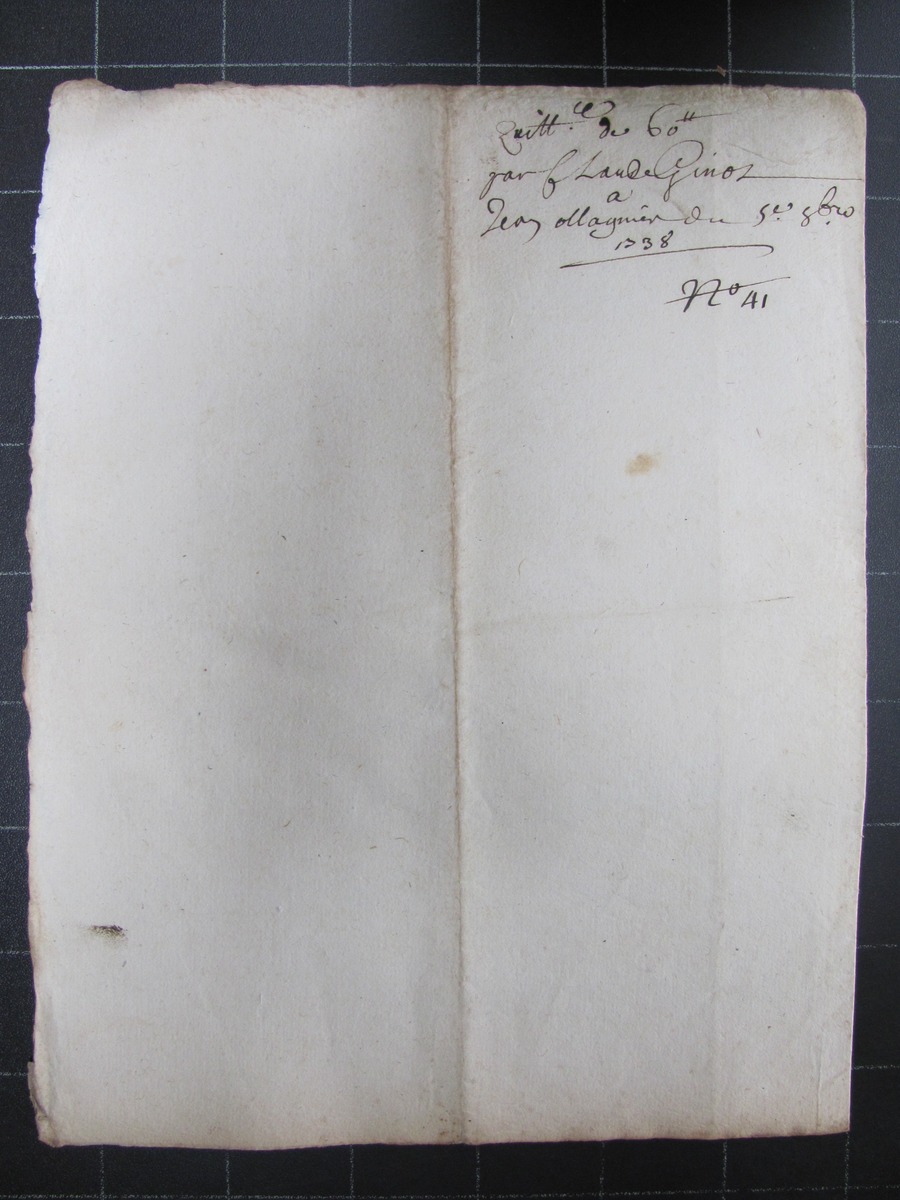 Quitt.ce de 60tt
par Claude Ginot
a
Jean ollagnier du 5e. 8bre
1738
No 41